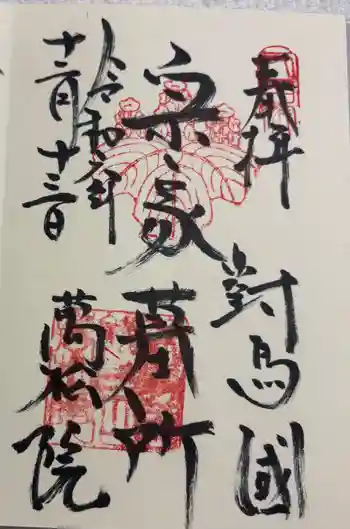 奉拝
對馬國
宗家墓所
萬松院
令和六年
十二月十三日